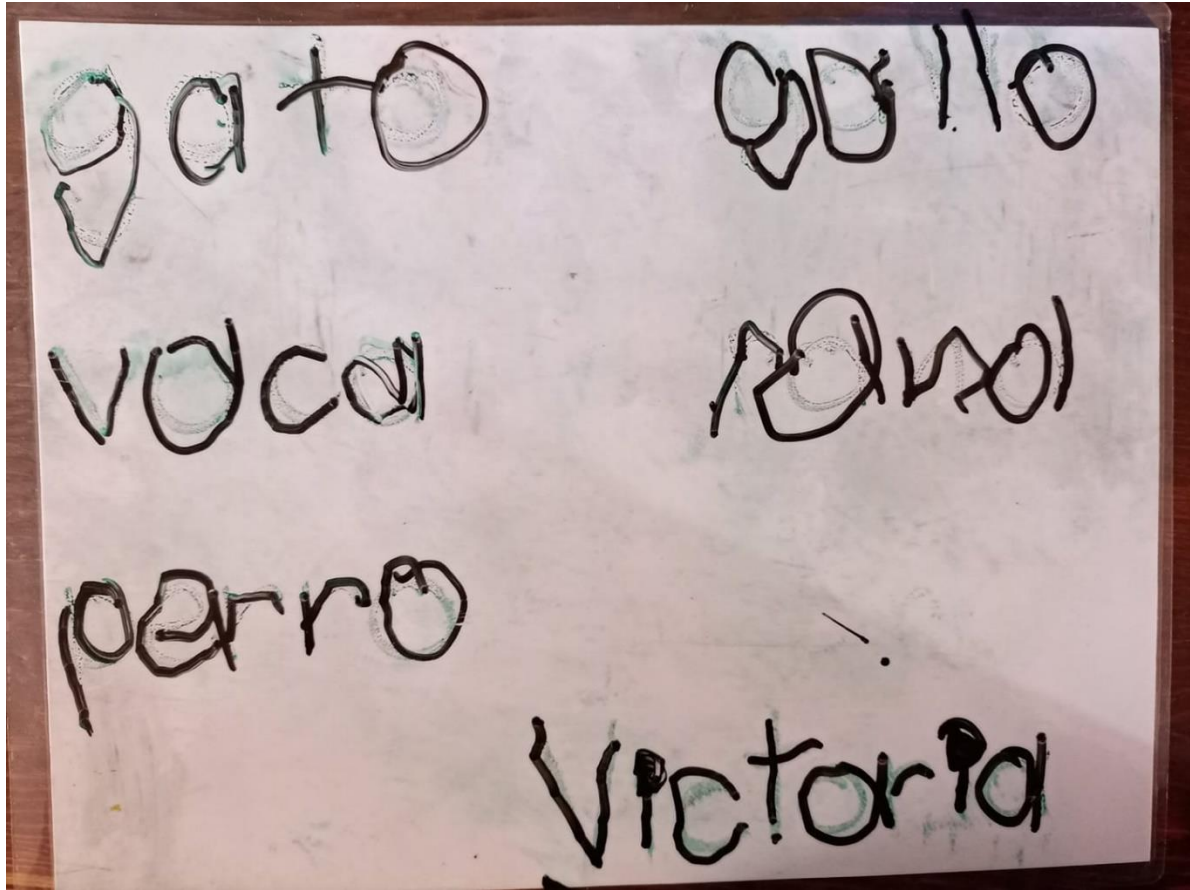 gato gallo
vaca rana
perro
Victoria